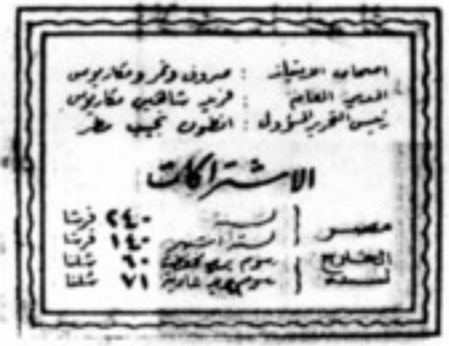 اصحاب الامتياز : صروف ونمر ومكاريوس
المدير العام : فريد شاهين مكاريوس
رئيس التحرير المسؤول : انطون نجيب مطر
الاشتراكات
مصر
لسنة ٢٤٠ قرشا
لستة اشهر ١٤٠ قرشا
الخارج لسنة
رسوم بريد ٦٠ شلنا
رسوم بريد ٧١ شلنا